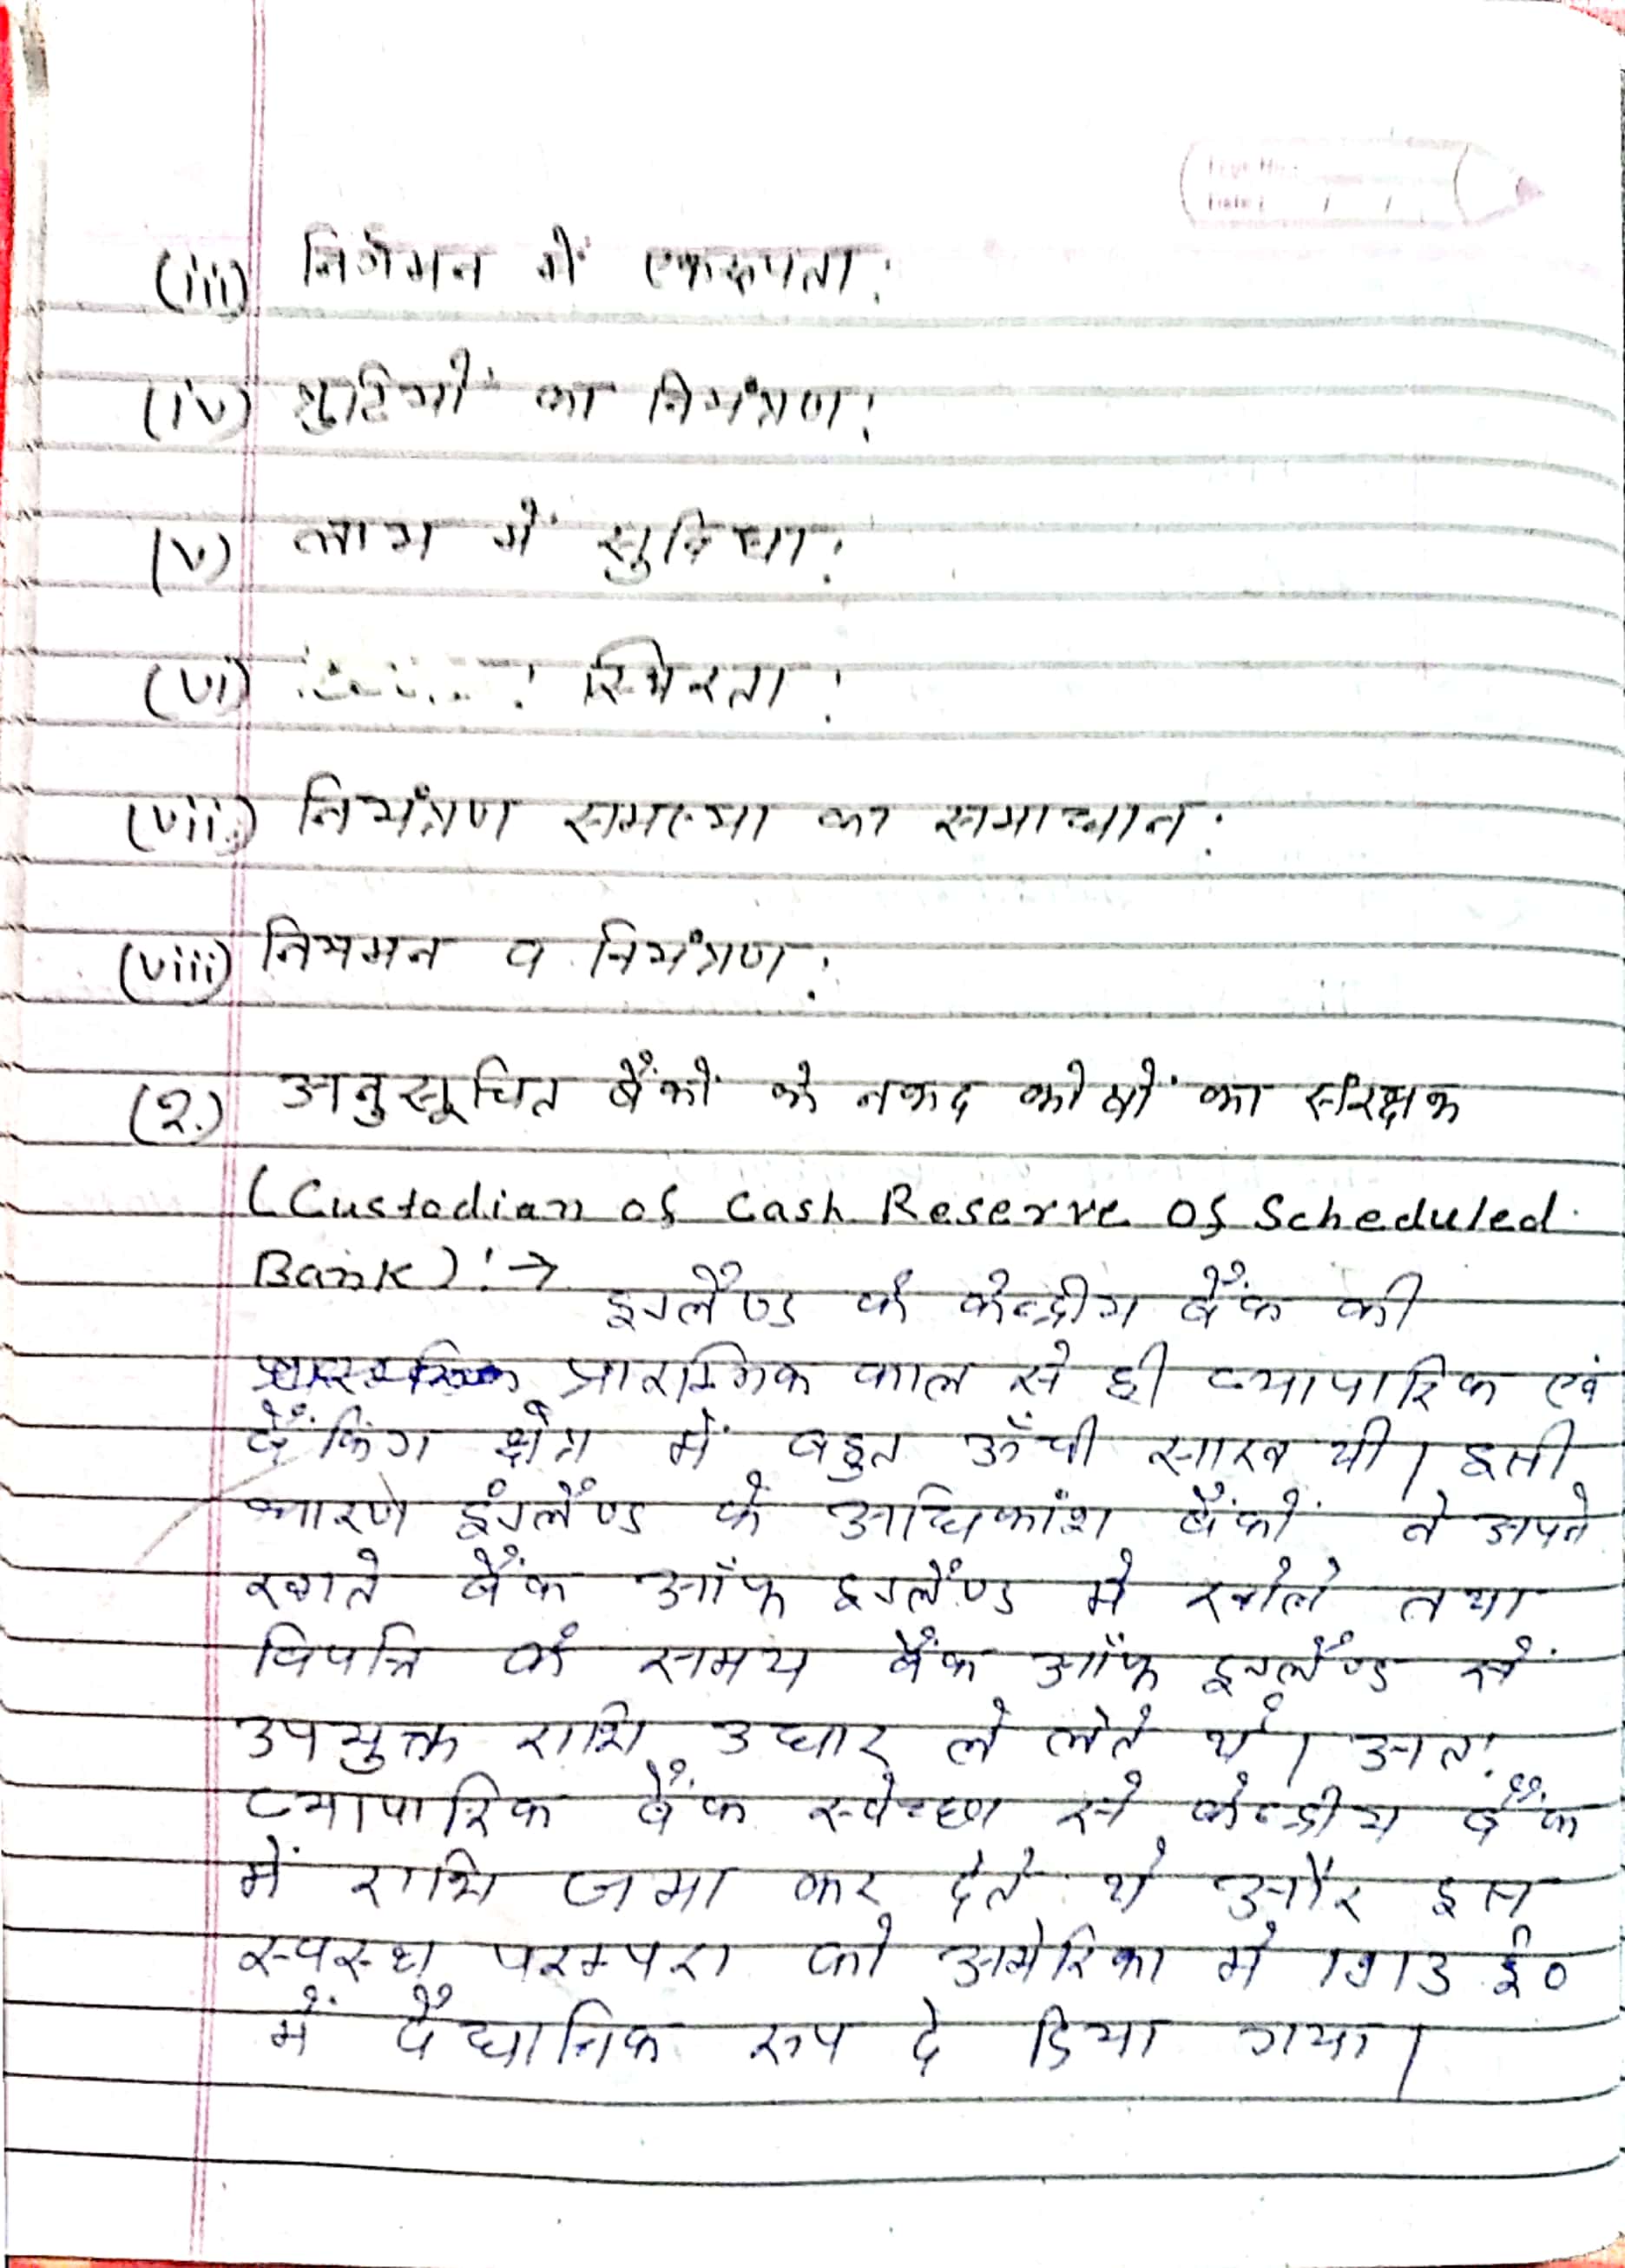 (iii) निर्गमन में एकरूपता:
(iv) त्रुटियों का नियंत्रण:
(v) लाभ में सुविधा:
(vi) : स्थिरता:
(vii) नियंत्रण समस्या का समाधान:
(viii) नियमन व नियंत्रण:
(2.) अनुसूचित बैंकों के नकद कोषों का संरक्षक
(Custodian of Cash Reserve of Scheduled
Bank):→
इंग्लैण्ड के केन्द्रीय बैंक की
प्रारम्भिक काल से ही व्यापारिक एवं
बैंकिंग क्षेत्र में बहुत ऊँची साख थी। इसी
कारण इंग्लैण्ड के अधिकांश बैंकों ने अपने
खाते बैंक ऑफ इंग्लैण्ड में खोले तथा
विपत्ति के समय बैंक ऑफ इंग्लैण्ड से
उपयुक्त राशि उधार ले लेते थे। अतः
व्यापारिक बैंक स्वेच्छा से केन्द्रीय बैंक
में राशि जमा कर देते थे और इस
स्वस्थ परम्परा को अमेरिका में 1913 ई०
में वैधानिक रूप दे दिया गया।